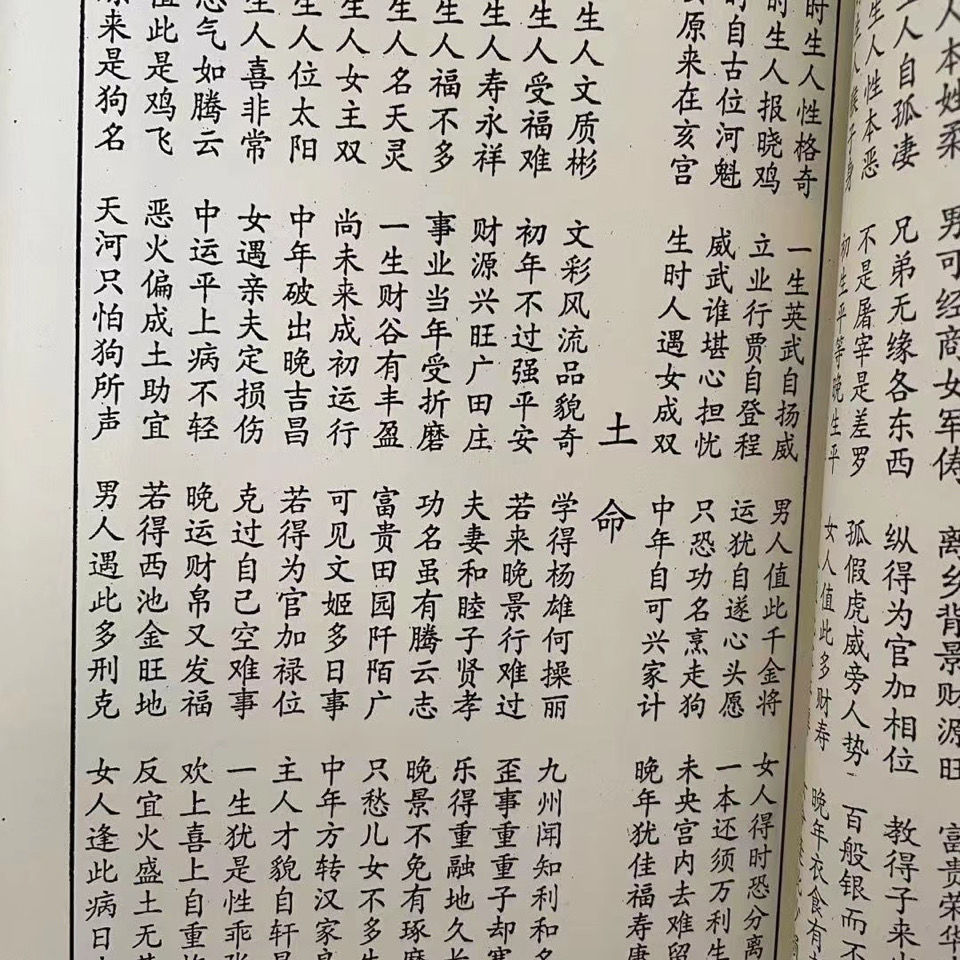 人本姓柔 男可经商女军俦 离乡背景财源旺 富贵荣华
人自孤凄 兄弟无缘各东西 纵得为官加相位 教得子来
生人性本恶 不是屠宰是差罗 孤假虎威旁人势 百般银而不
初生平等晚生平 女人值此多财寿 晚年衣食有
时生人性格奇 一生英武自扬威 男人值此千金将 女人得时恐分离
时生人报晓鸡 立业行贾自登程 运犹自遂心头愿 一本还须万利生
时自古位河魁 威武谁堪心担忧 只恐功名烹走狗 未央宫内去难留
原来在亥宫 生时人遇女成双 中年自可兴家计 晚年犹佳福寿康
土命
生人文质彬 文彩风流品貌奇 学得杨雄何操丽 九州闻知利和名
生人受福难 初年不过强平安 若来晚景行难过 歪事重重子却寒
生人寿永祥 财源兴旺广田庄 夫妻和睦子贤孝 乐得重融地久长
生人福不多 事业当年受折磨 功名虽有腾云志 晚景不免有琢磨
生人名天灵 一生财谷有丰盈 富贵田园阡陌广 只愁儿女不多生
生人女主双 尚未来成初运行 可见文姬多日事 中年方转汉家
生人位太阳 中年破出晚吉昌 若得为官加禄位 主人才貌自轩
生人喜非常 女遇亲夫定损伤 克过自己空难事 一生犹是性乖张
气如腾云 中运平上病不轻 晚运财帛又发福 欢上喜上自重
值此是鸡飞 恶火偏成土助宜 若得西池金旺地 反宜火盛土无
来是狗名 天河只怕狗所声 男人遇此多刑克 女人逢此病日